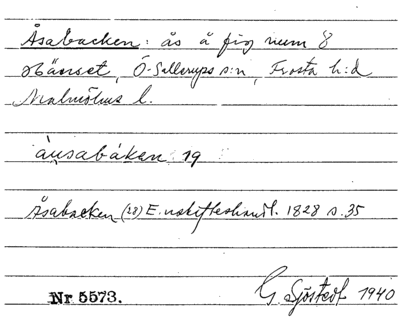 Åsabacken: ås å fig num 8
Hänset, Ö. Sallerups s:n, Frosta h:d
Malmöhus l.
åusabákan 19
Åsabacken (28) E. nskifteshandl. 1828 s. 35
Nr 5573. G. Sjöstedt 1940